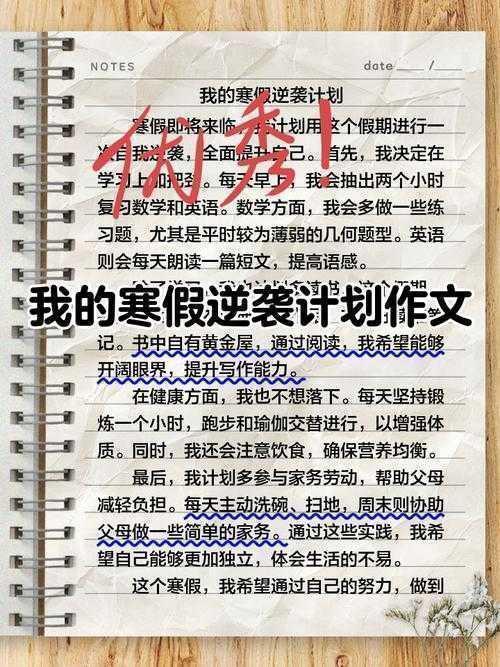 NOTES
date /
我的寒假逆袭计划
寒假即将来临，我计划用这个假期进行一
次自我逆袭，全面提升自己。首先，我决定在
学习上加把劲。每天早上，我会抽出两个小时
复习数学和英语。数学方面，我会多做一些练
习题，尤其是平时较为薄弱的几何题型。英语
则会每天朗读一篇短文，提高语感。
优秀！
我的寒假逆袭计划作文
记。书中自有黄金屋，通过阅读，我希望能够
开阔眼界，提升写作能力。
在健康方面，我也不想落下。每天坚持锻
炼一个小时，跑步和瑜伽交替进行，以增强体
质。同时，我还会注意饮食，确保营养均衡。
最后，我计划多参与家务劳动，帮助父母
减轻负担。每天主动洗碗、扫地，周末则协助
父母做一些简单的家务。通过这些实践，我希
望自己能够更加独立，体会生活的不易。
这个寒假，我希望通过自己的努力，做到